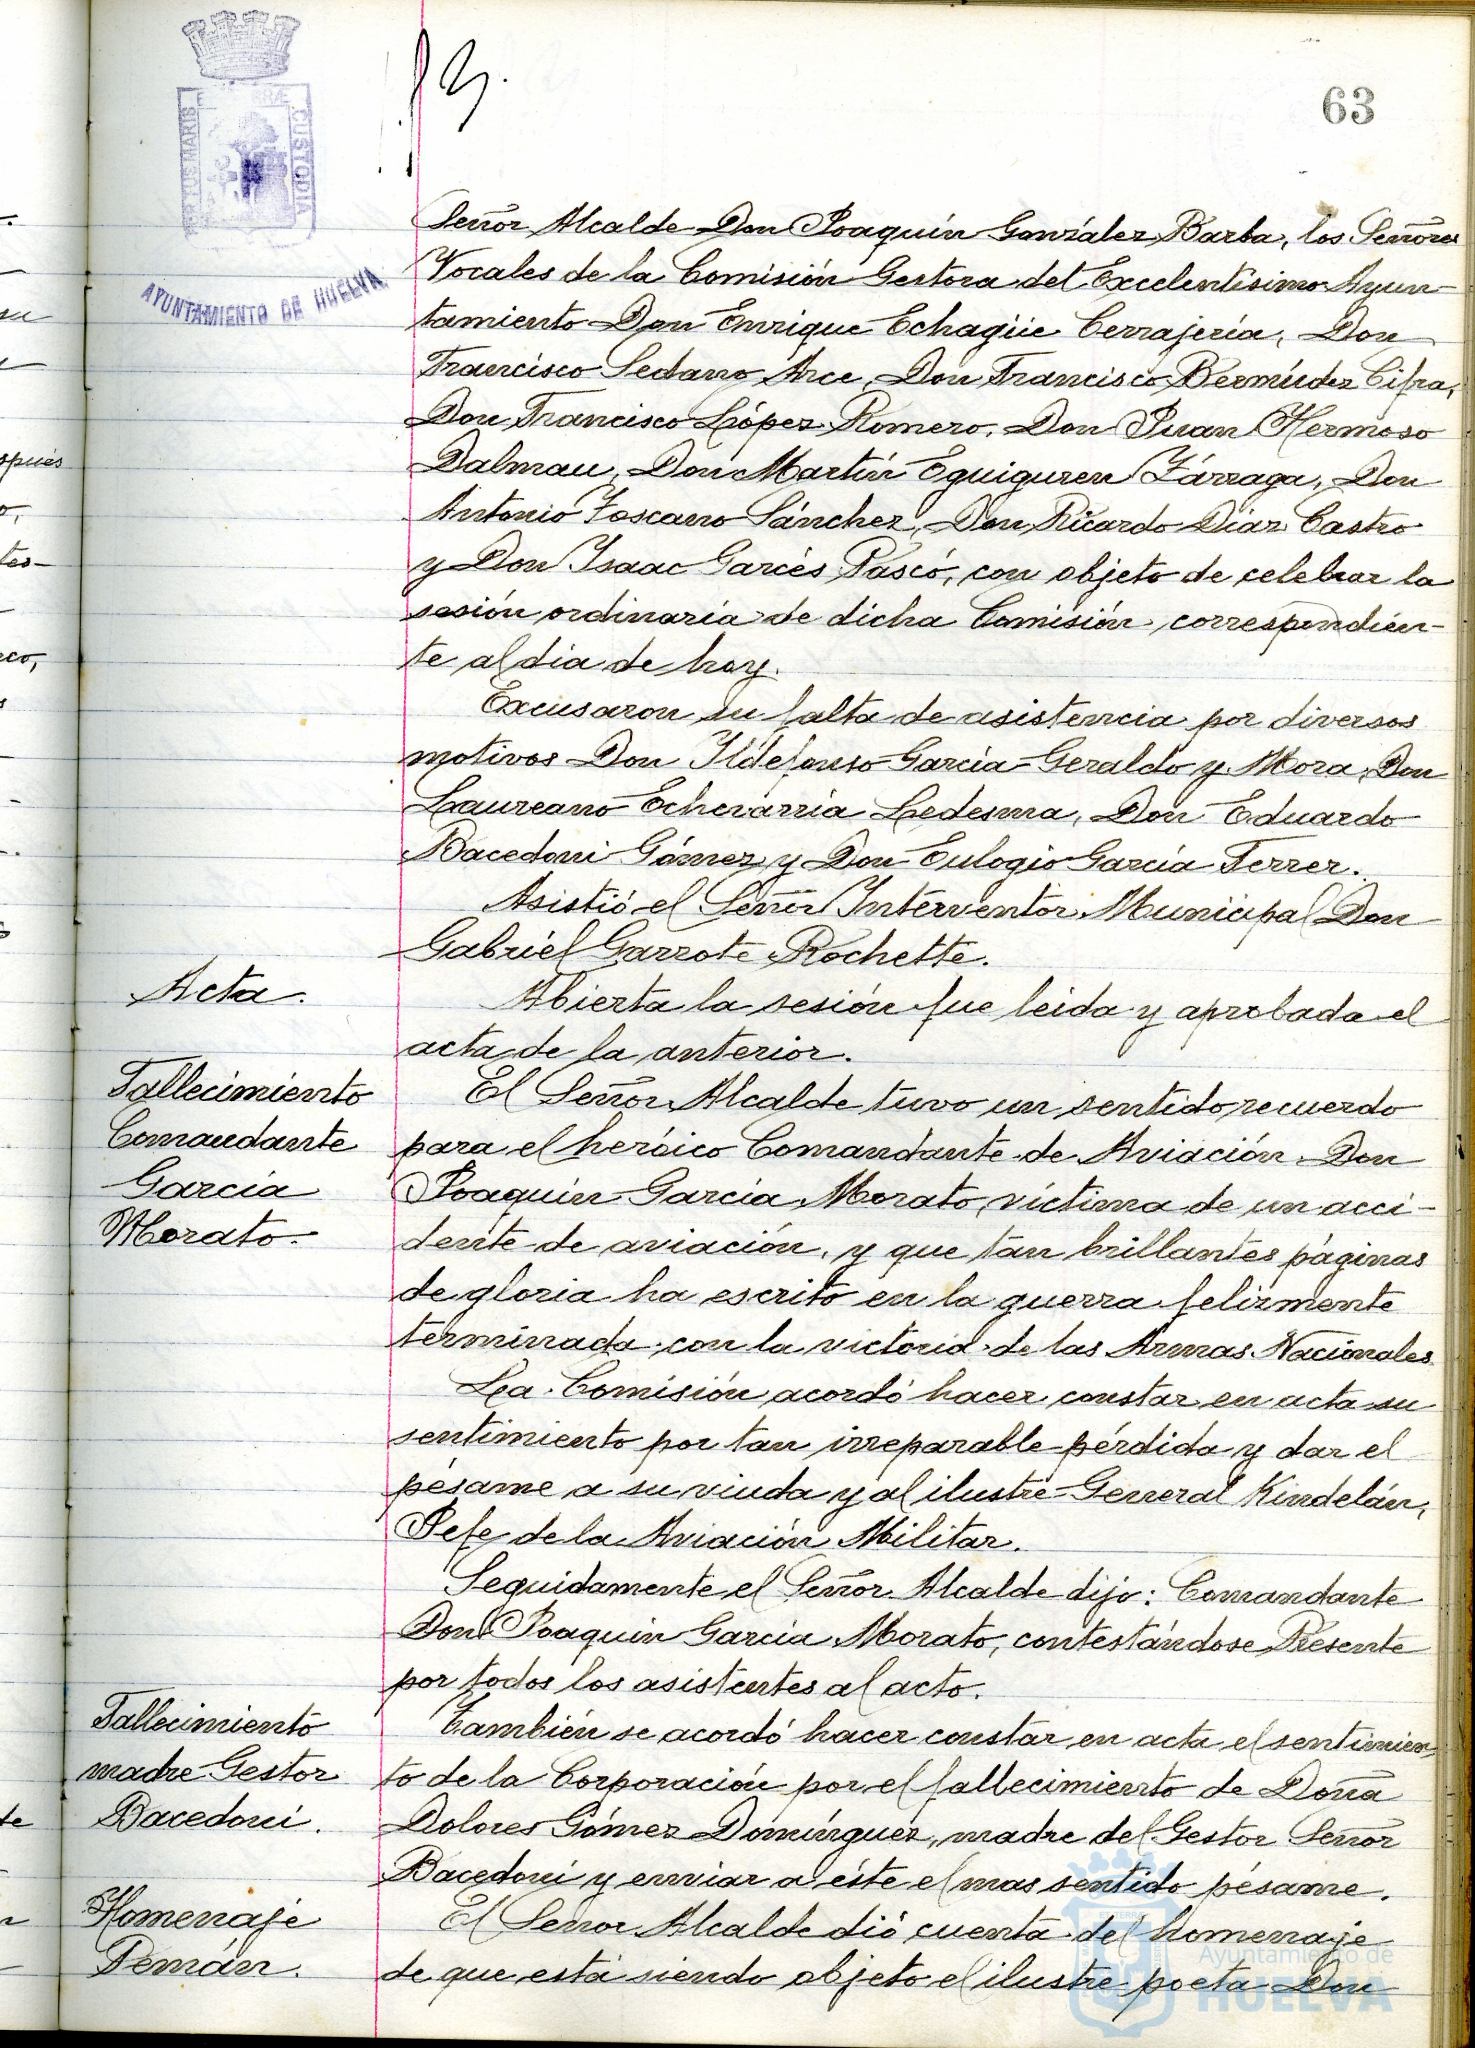 63
PORTUS MARIS ET TERRÆ CUSTODIA
AYUNTAMIENTO DE HUELVA
Señor Alcalde Don Joaquín González Barba, los Señores
Vocales de la Comisión Gestora del Excelentísimo Ayun-
tamiento Don Enrique Echagüe Cerrajería, Don
Francisco Sedano Arce, Don Francisco Bermúdez Cifra,
Don Francisco López Romero, Don Juan Hermoso
Dalmau, Don Martín Eguiguren Zárraga, Don
Antonio Toscano Sánchez, Don Ricardo Díaz Castro
y Don Isaac Garcés Pascó, con objeto de celebrar la
sesión ordinaria de dicha Comisión, correspondien-
te al dia de hoy.
Excusaron su falta de asistencia por diversos
motivos Don Ildefonso García-Geraldo y Mora, Don
Laureano Echevarría Ledesma, Don Eduardo
Bacedoni Gómez y Don Eulogio García Ferrer.
Asistió el Señor Interventor Municipal Don
Gabriel Garrote Rochette.
Acta.
Abierta la sesión fue leida y aprobada el
acta de la anterior.
Fallecimiento
Comandante
García
Morato.
El Señor Alcalde tuvo un sentido recuerdo
para el heróico Comandante de Aviación Don
Joaquín García Morato, víctima de un acci-
dente de aviación, y que tan brillantes páginas
de gloria ha escrito en la guerra felizmente
terminada con la victoria de las Armas Nacionales
La Comisión acordó hacer constar en acta su
sentimiento por tan irreparable pérdida y dar el
pésame a su viuda y al ilustre General Kindelán,
Jefe de la Aviación Militar.
Seguidamente el Señor Alcalde dijo: Comandante
Don Joaquin García Morato, contestándose Presente
por todos los asistentes al acto.
Fallecimiento
madre Gestor
Bacedoni.
También se acordó hacer constar en acta el sentimien
to de la Corporación por el fallecimiento de Doña
Dolores Gómez Domínguez, madre del Gestor Señor
Bacedoni y enviar a éste el mas sentido pésame.
Homenaje
Pemán.
El Señor Alcalde dió cuenta del homenaje
de que está siendo objeto el ilustre poeta Don
Ayuntamiento de
HUELVA